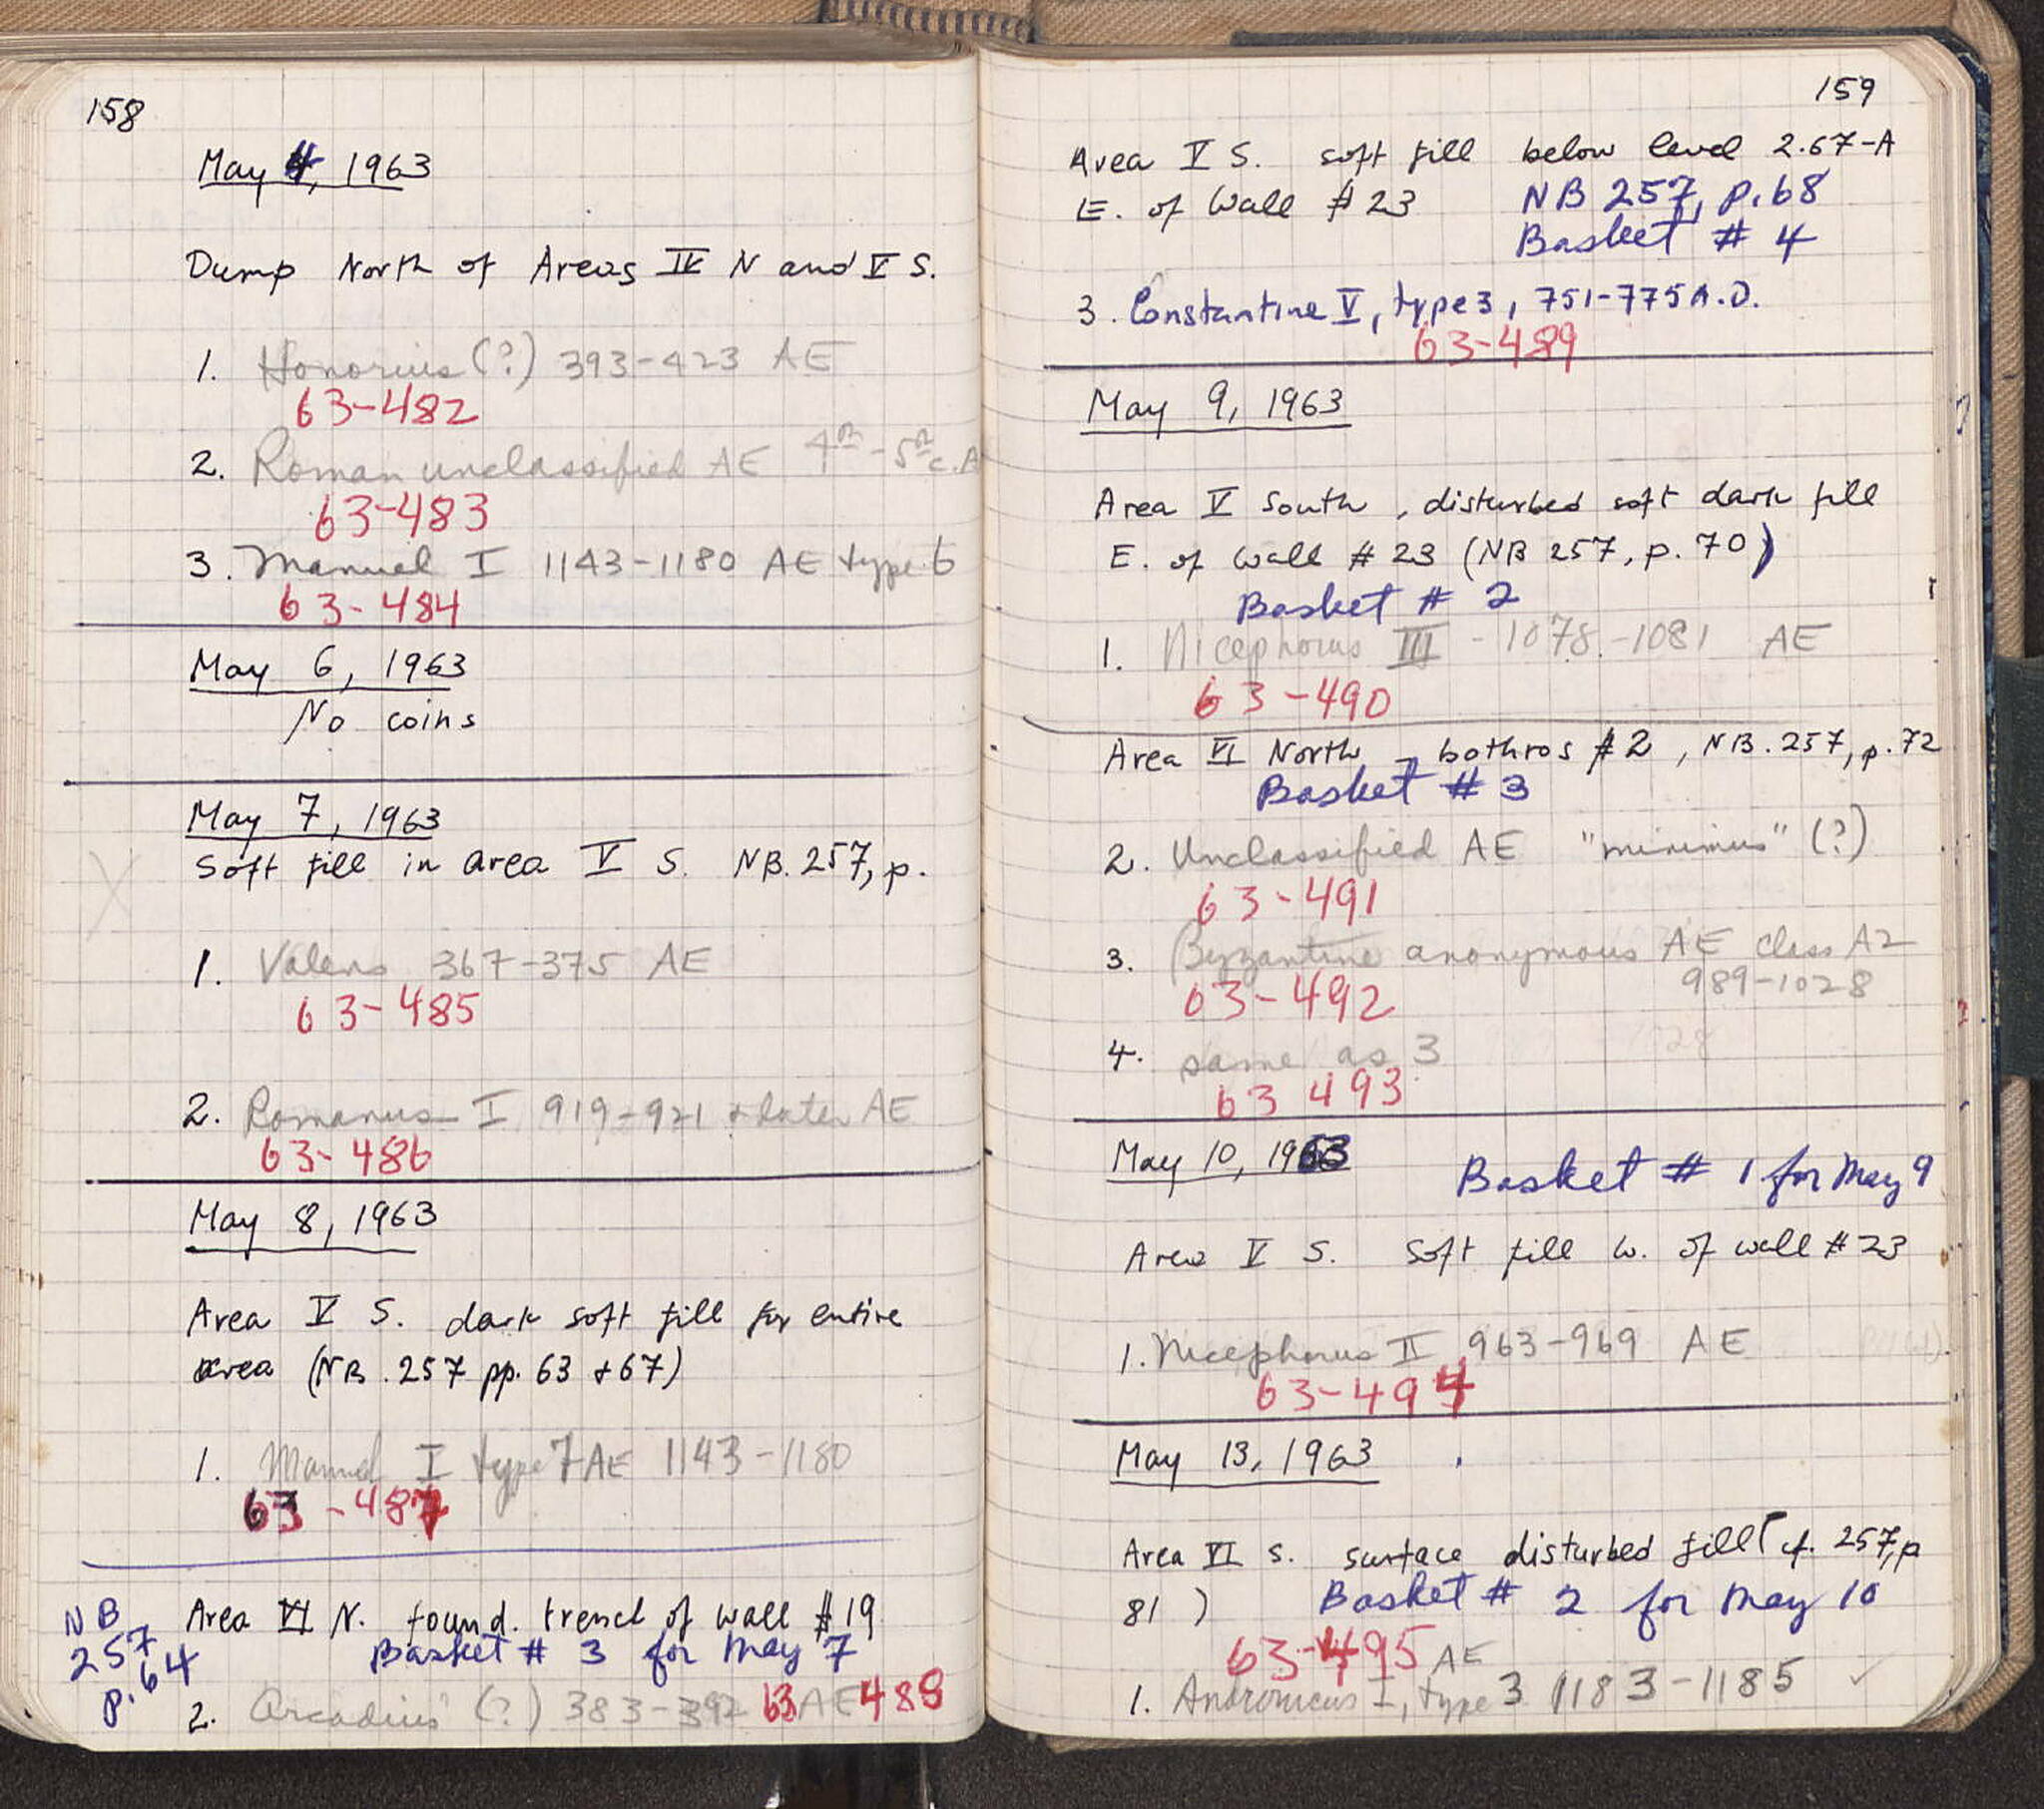 158
May 4, 1963
Dump North of Areas IV N and V S.
1. Honorius (?) 393-423 AE
63-482
2. Roman unclassified AE 4th-5th c. A
63-483
3. Manuel I 1143-1180 AE type 6
63-484
May 6, 1963
No coins
May 7, 1963
Soft fill in area V S. NB. 257, p.
1. Valens 367-375 AE
63-485
2. Romanus I 919-921 & later AE
63-486
May 8, 1963
Area V S. dark soft fill for entire
area (NB. 257 pp. 63 & 67)
1. Manuel I type 7 AE 1143-1180
63-487
NB
257
p. 64
Area VI N. found. trench of wall #19
Basket # 3 for May 7
2. Arcadius (?) 383-392 63 AE 488
159
Area V S. soft fill below level 2.67-A
E. of Wall #23 NB 257, p. 68
Basket # 4
3. Constantine V, type 3, 751-775 A.D.
63-489
May 9, 1963
Area V South, disturbed soft dark fill
E. of wall #23 (NB 257, p. 70)
Basket # 2
1. Nicephorus III - 1078-1081 AE
63-490
Area VI North - bothros #2, NB. 257, p. 72
Basket # 3
2. Unclassified AE "minimus" (?)
63-491
3. Byzantine anonymous AE class A2
989-1028
63-492
4. same as 3
63 493
May 10, 1963 Basket # 1 for May 9
Area V S. Soft fill W. of wall #23
1. Nicephorus II 963-969 AE
63-494
May 13, 1963
Area VI S. surface disturbed fill (cf. 257, p
81) Basket # 2 for May 10
63-495 AE
1. Andronicus I, type 3 1183-1185